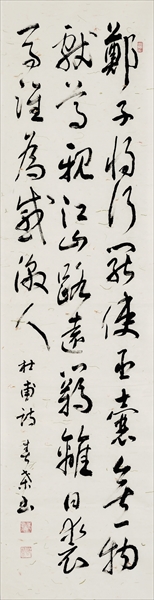 鄭子將行罷使臣囊無一物
獻尊親江山路遠羈離日裘
馬誰為感激人
杜甫詩 書